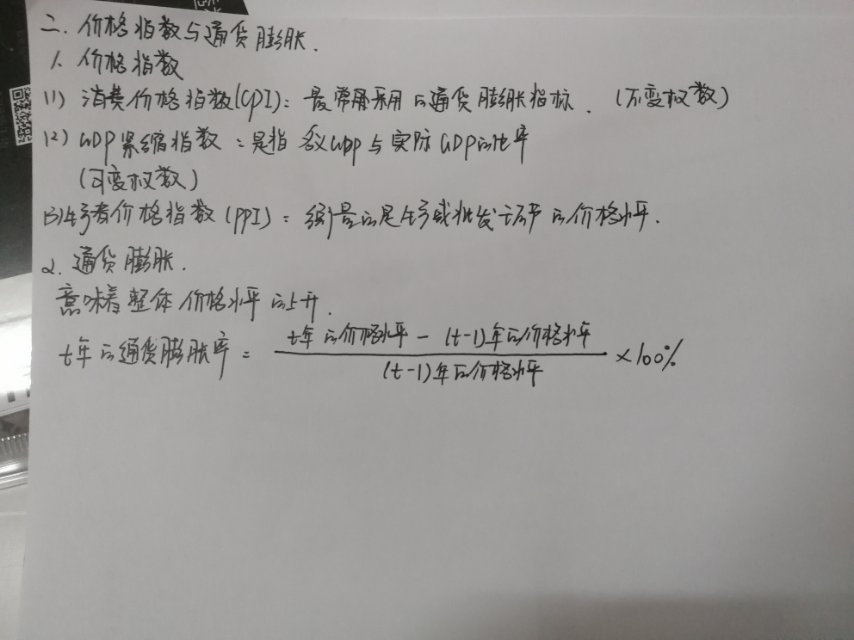 二、价格指数与通货膨胀.
1. 价格指数
(1) 消费价格指数(CPI): 最常用采用的通货膨胀指标. (不变权数)
(2) GDP紧缩指数: 是指名义GDP与实际GDP的比率
(可变权数)
(3)生产者价格指数(PPI): 衡量的是生产或批发环节的价格水平.
2. 通货膨胀.
意味着整体价格水平的上升.
t年的通货膨胀率 = t年的价格水平 - (t-1)年的价格水平 / (t-1)年的价格水平 ×100%